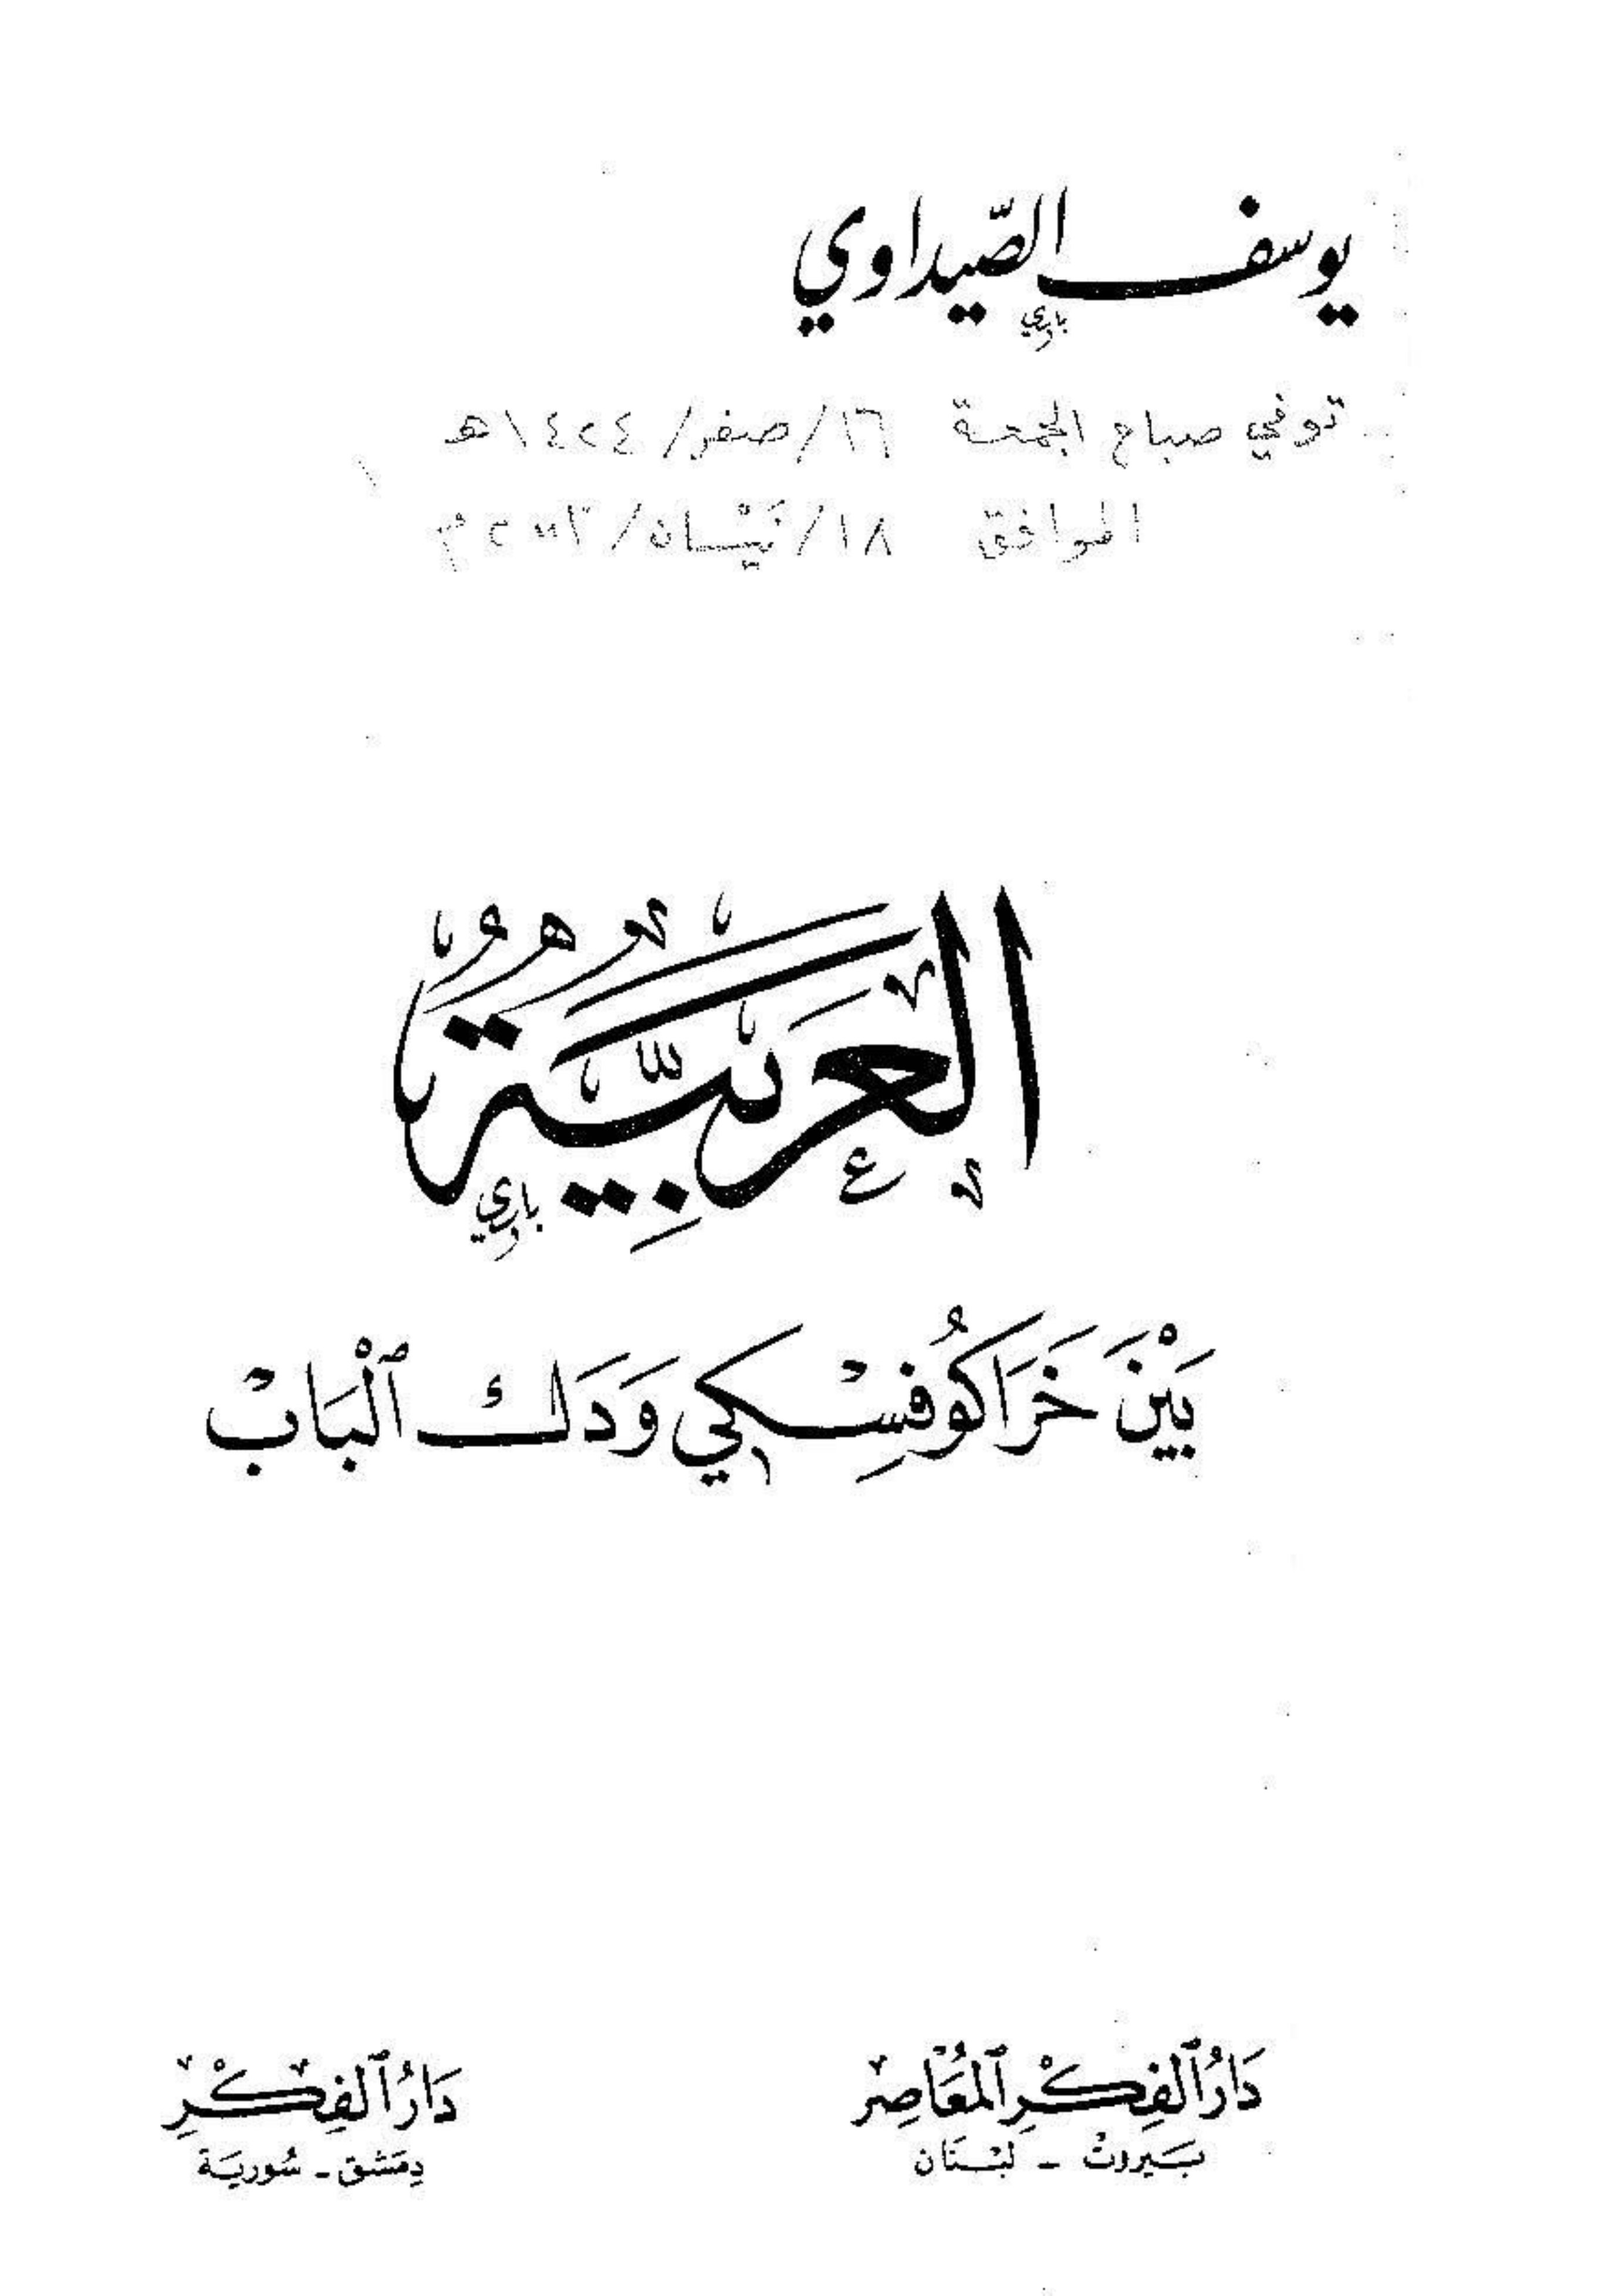 يوسف الصّيداوي
باري
توفي صباح الجمعة ١٦/صفر/١٤٢٤هـ
الموافق ١٨/نَيْسان/٢٠٠٣م
العَرَبِيَّةُ
باري
بَيْنَ خَرَاكُوفِسْكِي وَدَك ٱلْبَابْ
دَارُ ٱلفِكْرِ ٱلمُعَاصِر
بَيروتْ - لبْنَان
دَارُ ٱلفِكْرِ
دِمَشق - سُوريَة